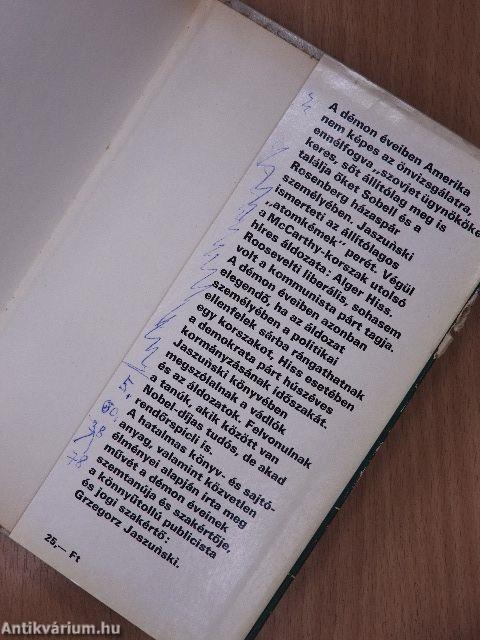 A démon éveiben Amerika
nem képes az önvizsgálatra,
ennélfogva „szovjet ügynököke
keres, sőt állítólag meg is
találja őket Sobell és a
Rosenberg házaspár
személyében. Jaszuński
ismerteti az állítólagos
„atomkémek” perét. Végül
a McCarthy-korszak utolsó
híres áldozata: Alger Hiss.
Roosevelti liberális, sohasem
volt a kommunista párt tagja.
A démon éveiben azonban
elegendő, ha az áldozat
személyében a politikai
ellenfelek sárba rángathatnak
egy korszakot, Hiss esetében
a demokrata párt húszéves
kormányzásának időszakát.
Jaszuński könyvében
megszólalnak a vádlók
és az áldozatok. Felvonulnak
a tanúk, akik között van
Nobel-díjas tudós, de akad
rendőrspicli is.
A hatalmas könyv- és sajtó-
anyag, valamint közvetlen
élményei alapján írta meg
művét a démon éveinek
szemtanúja és szakértője,
a könnyűtollú publicista
és jogi szakértő:
Grzegorz Jaszuński.
25,— Ft
5,
38
78
Antikvárium.hu